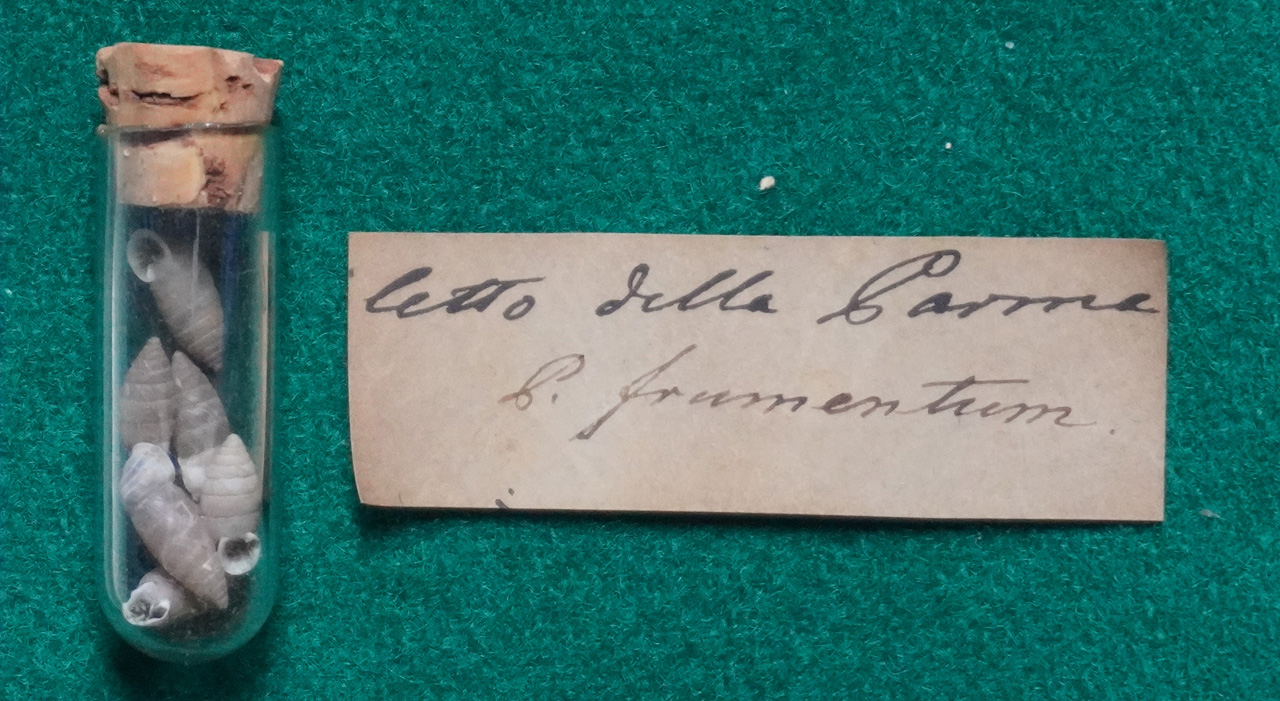 letto della Parma
P. frumentum.